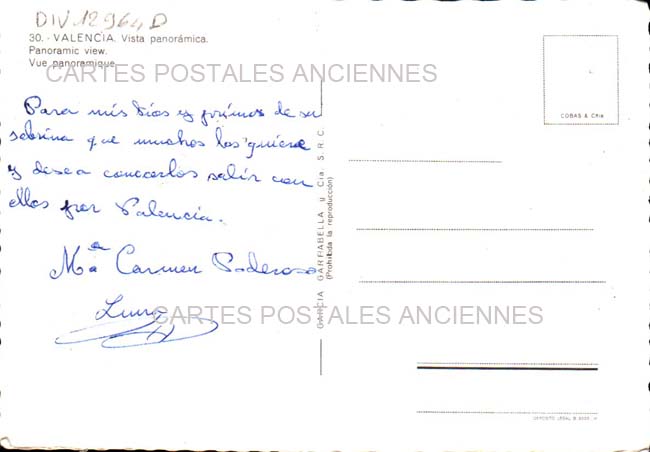 DIV 12964D
30. - VALENCIA. Vista panorámica.
Panoramic view.
Vue panoramique.
CARTES POSTALES ANCIENNES
Para mis tios y primos de su
sobrina que muchos los quiere
y desea conocerlos salir con
ellos por Valencia.
Mª Carmen Poderoso
CARTES POSTALES ANCIENNES
GARCIA GARRABELLA y Cia. S.R.C.
(Prohibida la reproducción)
COBAS & CAIX
DEPOSITO LEGAL B.